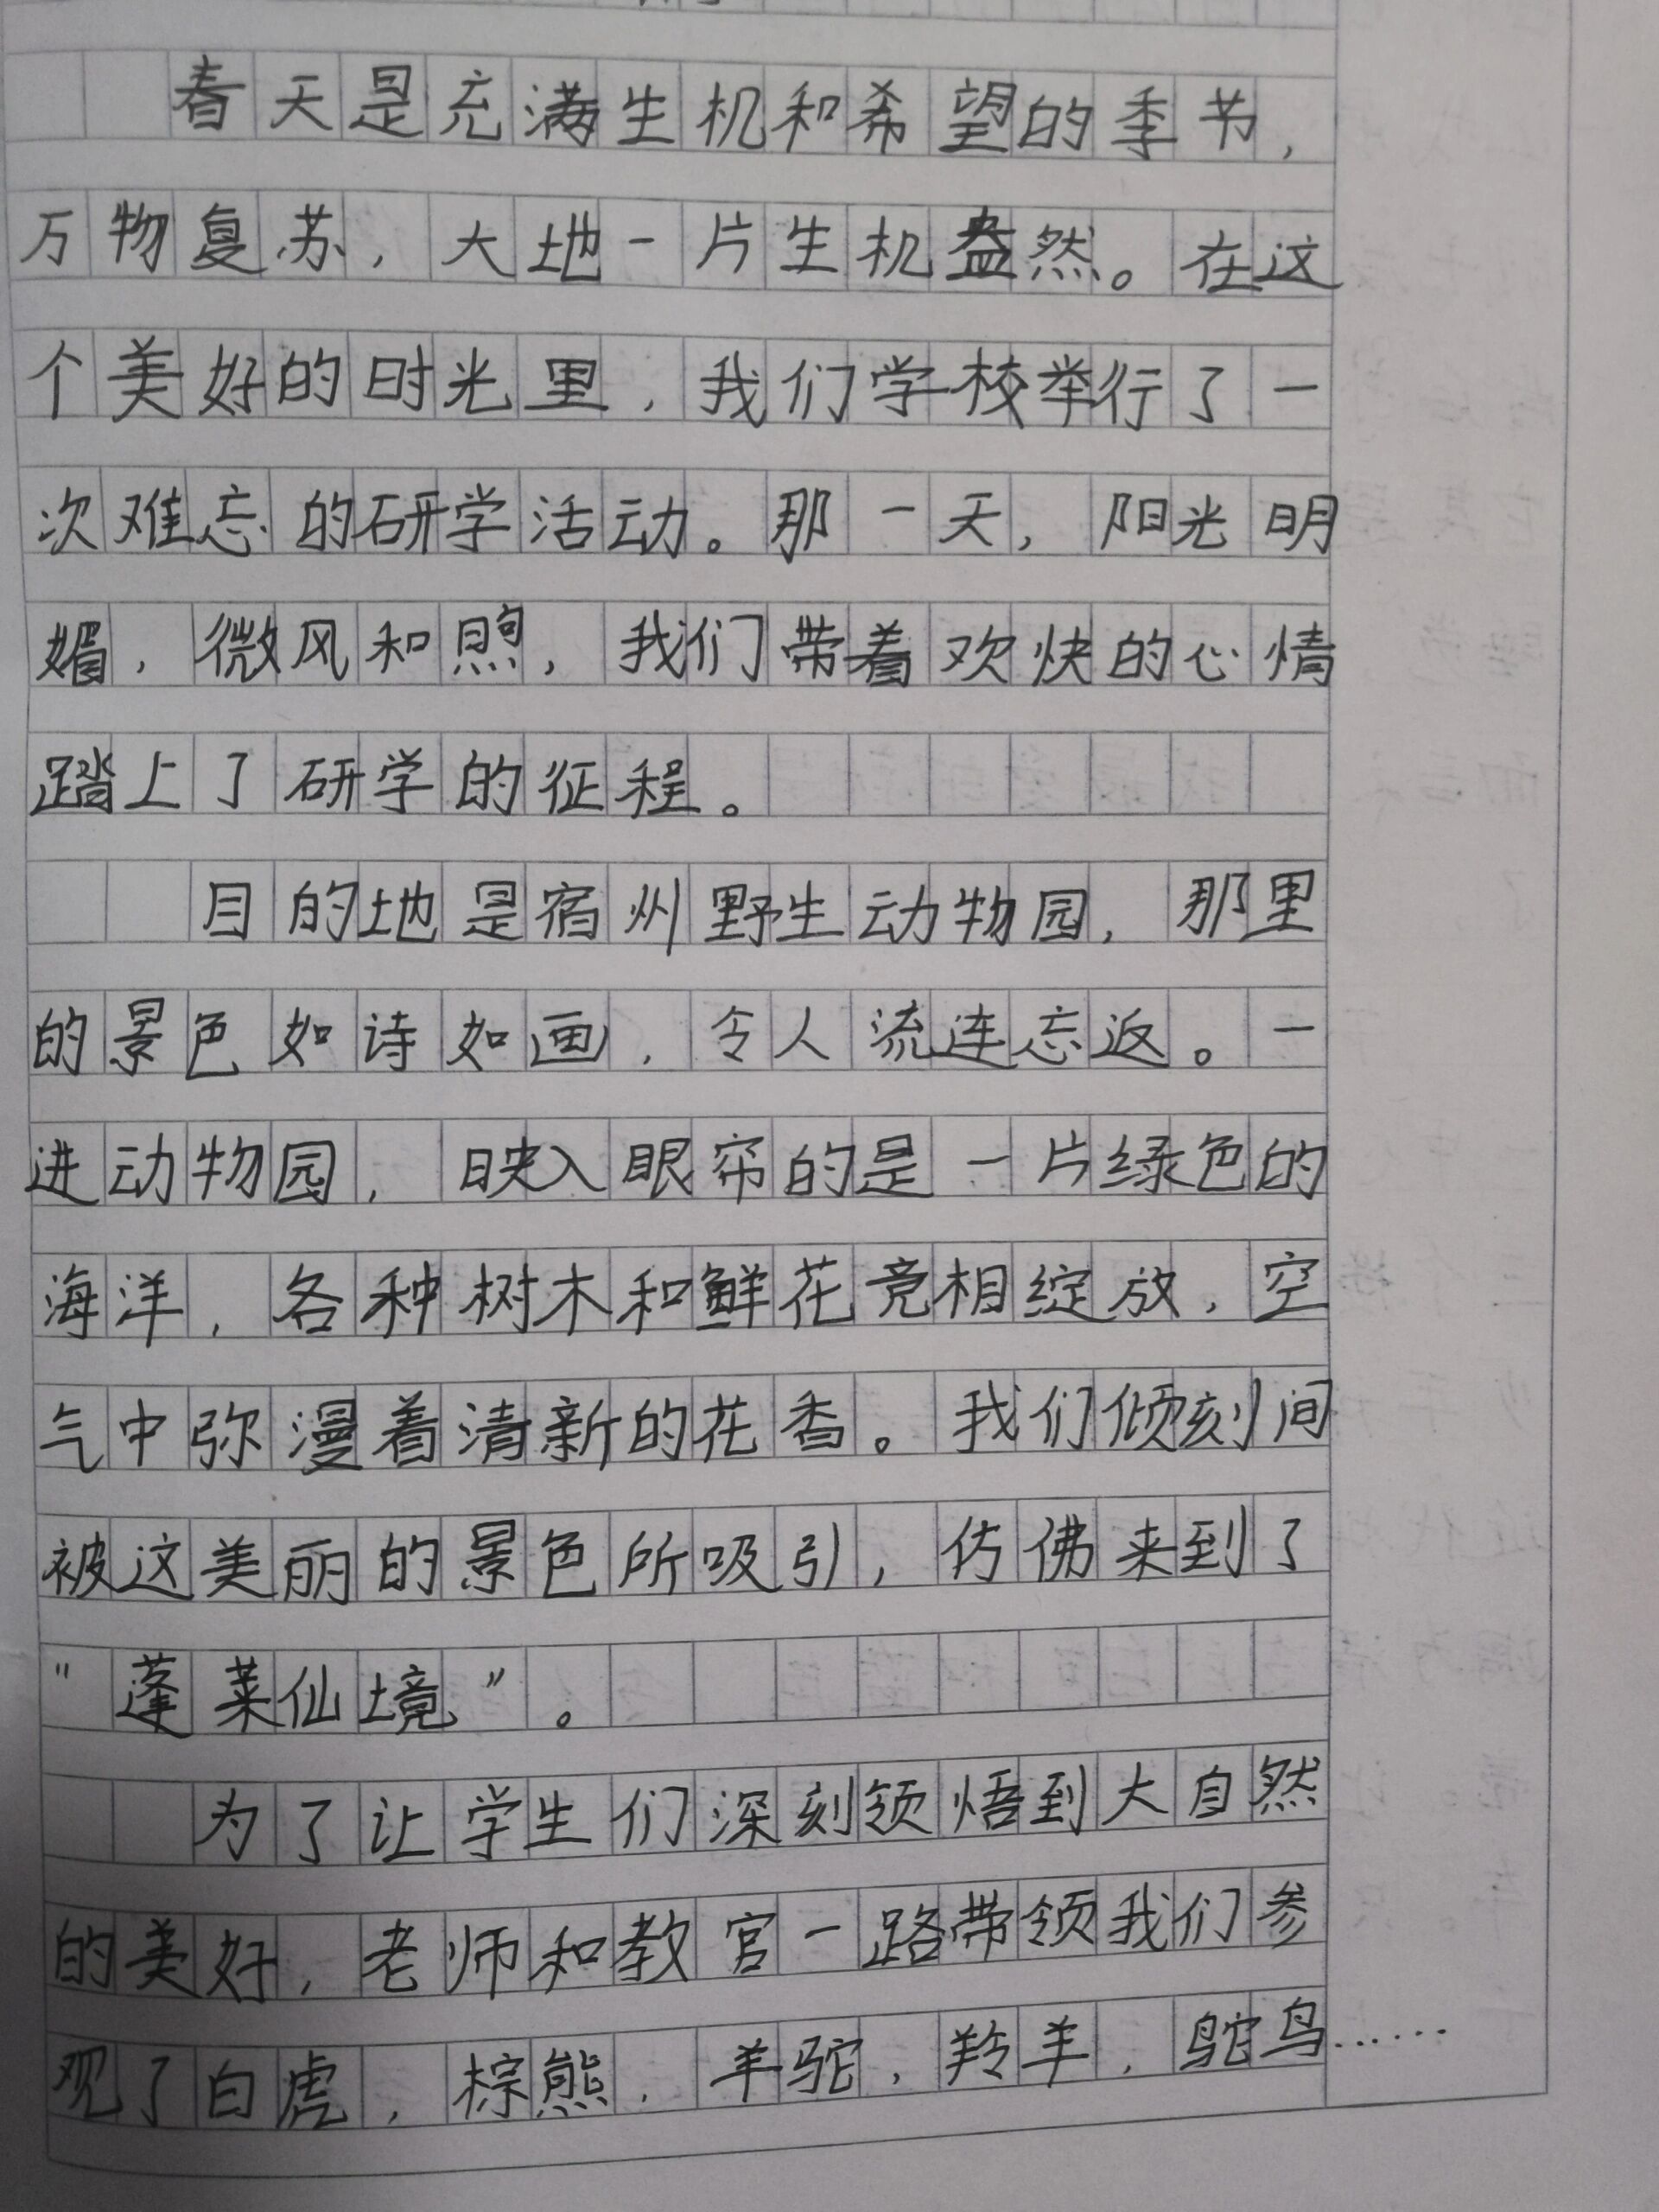 春天是充满生机和希望的季节，
万物复苏，大地一片生机盎然。在这
个美好的时光里，我们学校举行了一
次难忘的研学活动。那一天，阳光明
媚，微风和煦，我们带着欢快的心情
踏上了研学的征程。
目的地是宿州野生动物园，那里
的景色如诗如画，令人流连忘返。一
进动物园，映入眼帘的是一片绿色的
海洋，各种树木和鲜花竞相绽放，空
气中弥漫着清新的花香。我们倾刻间
被这美丽的景色所吸引，仿佛来到了
“蓬莱仙境”。
为了让学生们深刻领悟到大自然
的美好，老师和教官一路带领我们参
观了白虎，棕熊，羊驼，羚羊，鸵鸟……